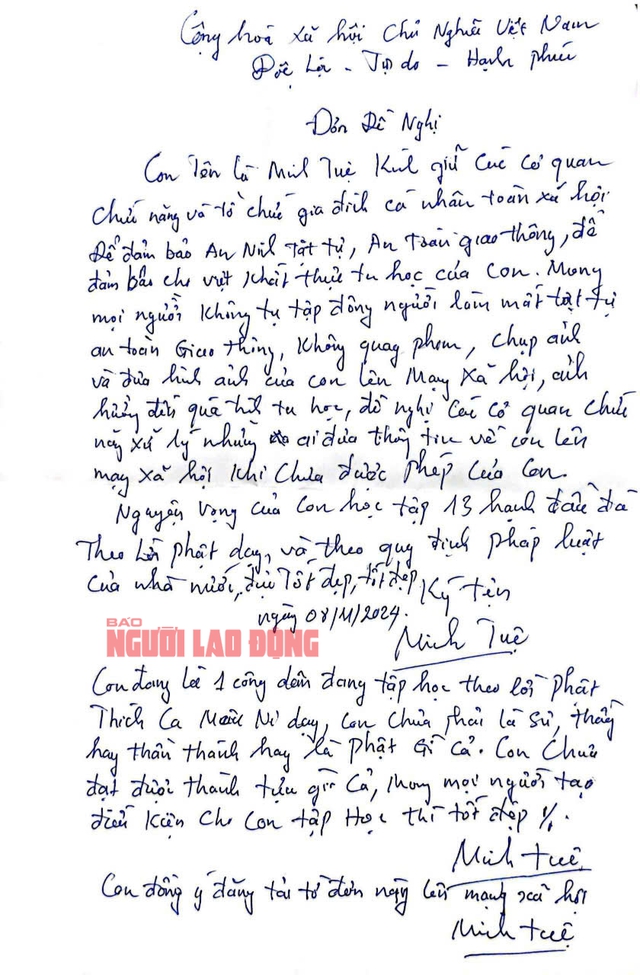 Cộng hoà xã hội Chủ Nghĩa Việt Nam
Độc Lập - Tự do - Hạnh phúc
Đơn Đề Nghị
Con Tên Là Minh Tuệ Kính gửi Các cơ quan
chức năng và tổ chức gia đình cá nhân toàn xã hội
Để đảm bảo An Ninh Trật tự, An toàn giao thông, để
đảm bảo cho việc khất thực tu học của con. Mong
mọi người Không tụ tập đông người làm mất trật tự
an toàn Giao thông, Không quay phim, chụp ảnh
và đưa hình ảnh của con lên Mạng Xã hội, ảnh
hưởng đến quá trình tu học, đề nghị Các cơ quan chức
năng xử lý những ai đưa thông tin về con lên
mạng xã hội khi chưa được phép của con.
Nguyện Vọng của Con học tập 13 hạnh đầu đà
Theo lời phật dạy, và theo quy định pháp luật
Của nhà nước, được Tốt đẹp, tốt đẹp
Ký tên
ngày 08/11/2024.
BÁO
NGƯỜI LAO ĐỘNG
Minh Tuệ
Con đang là 1 công dân đang tập học theo lời phật
Thích Ca Mâu Ni dạy, con chưa phải là Sư, thầy
hay thần thánh hay là phật Gì cả. Con Chưa
đạt được thành tựu gì Cả, Mong mọi người tạo
điều Kiện Cho Con tập Học thì tốt đẹp %.
Minh tuệ
Con đồng ý đăng tải tờ đơn này lên mạng xã hội
Minh tuệ